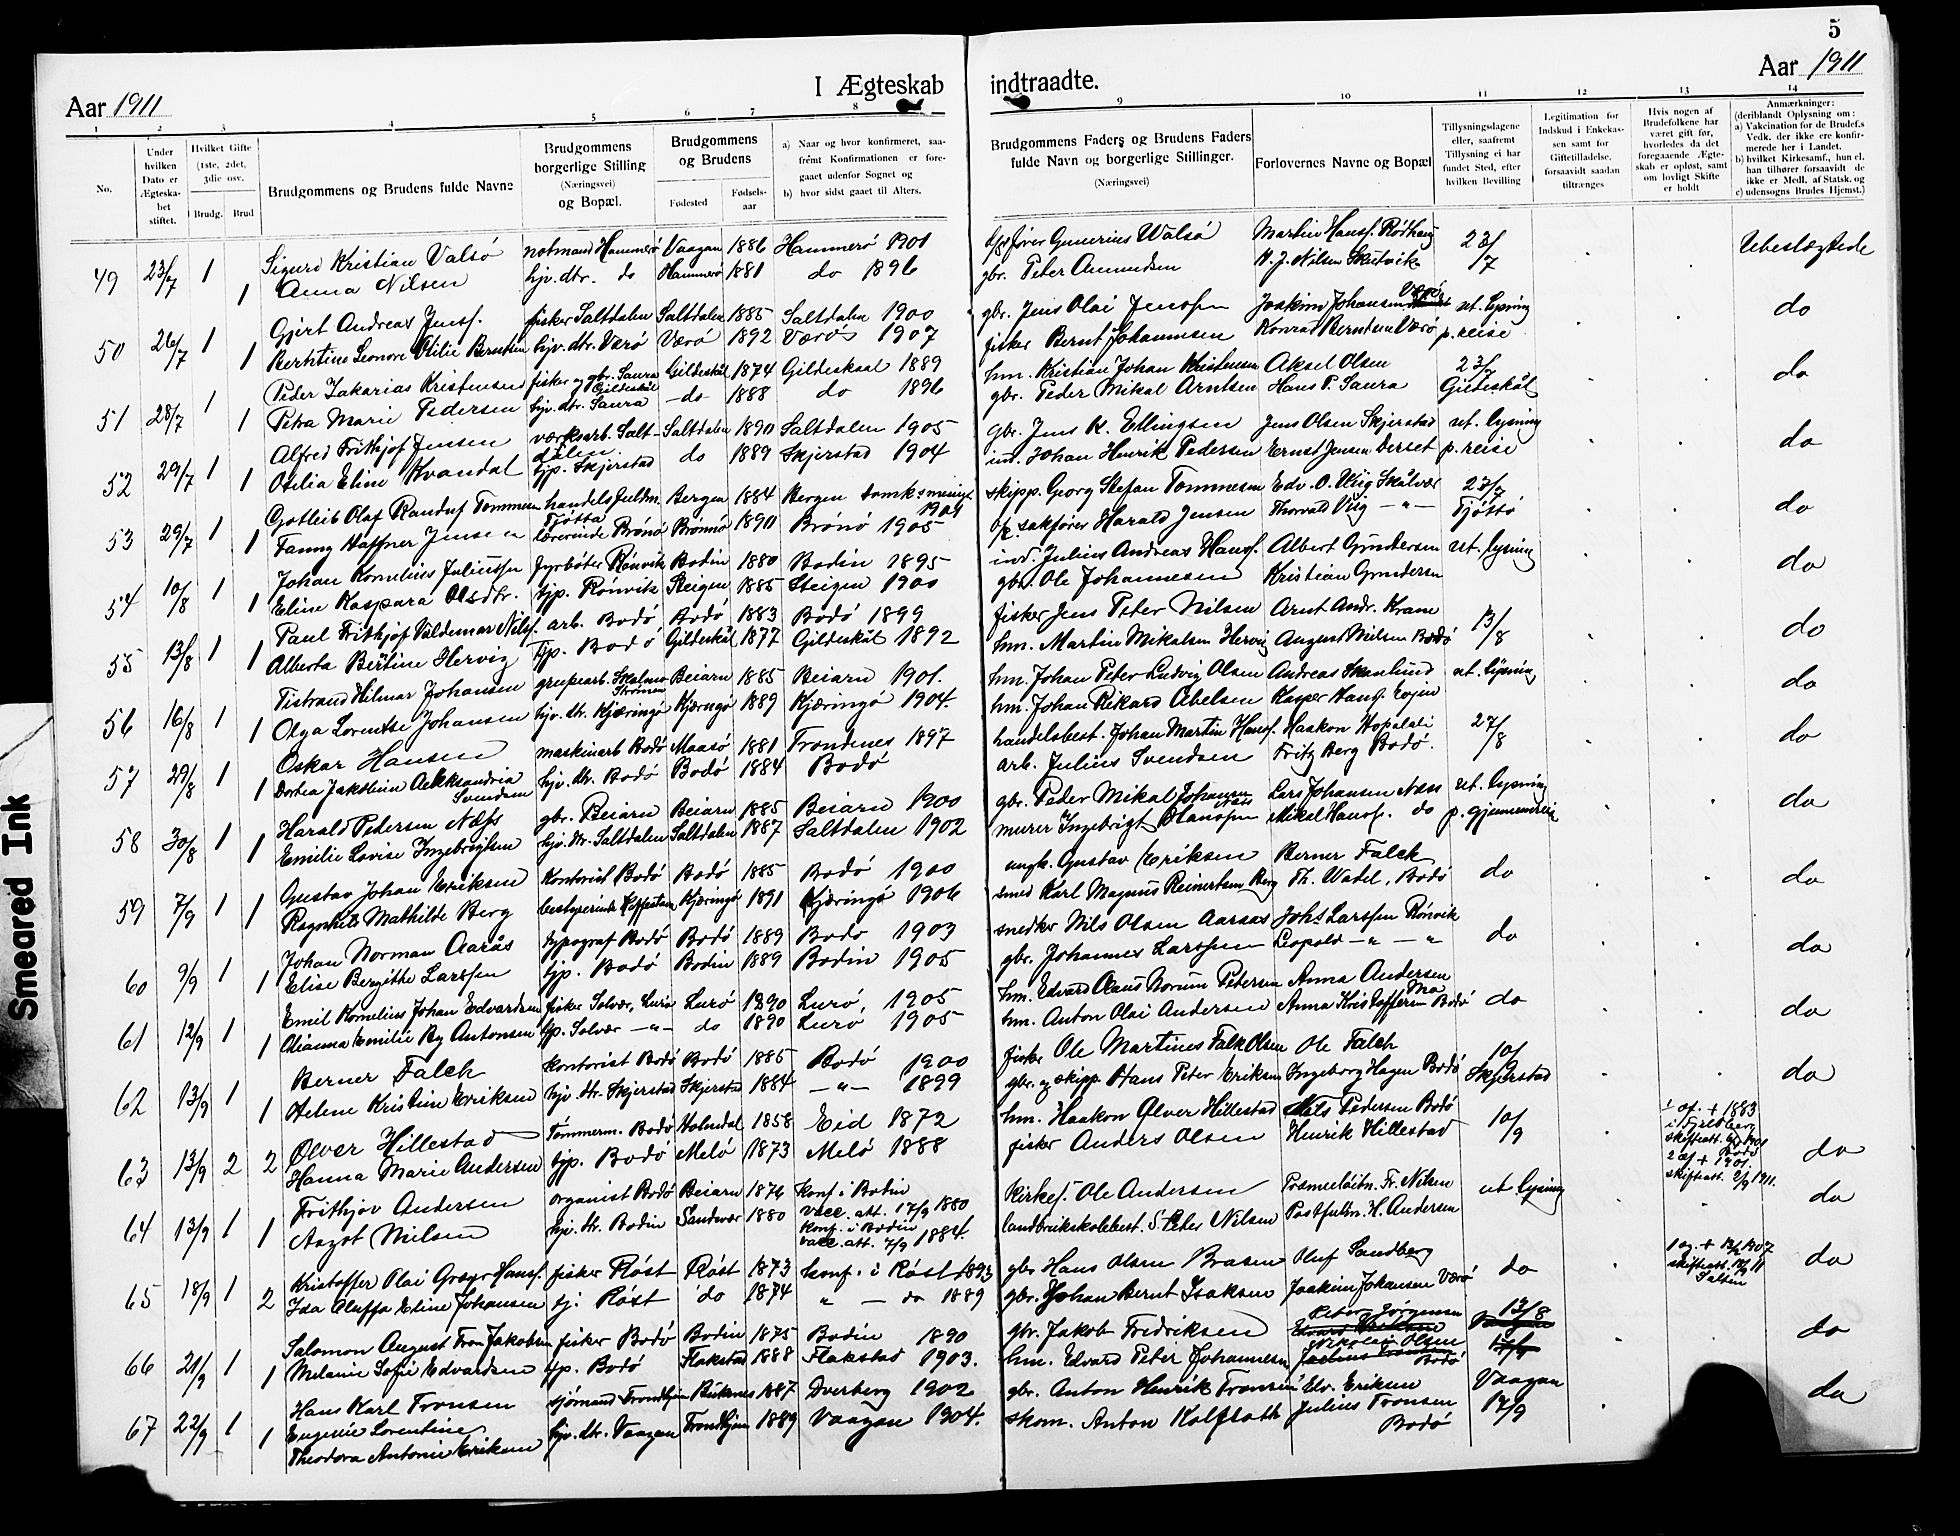 5
Aar 1911
I Ægteskab indtraadte.
Aar 1911
1 2 3 4 5 6 7 8 9 10 11 12 13 14
No.
Under hvilken Dato er Ægteskabet stiftet.
Hvilket Gifte (1ste, 2det, 3die osv.
Brudg. Brud
Brudgommens og Brudens fulde Navne
Brudgommens borgerlige Stilling (Næringsvei) og Bopæl.
Brudgommens og Brudens
Fødested
Fødselsaar
a) Naar og hvor konfirmeret, saafrémt Konfirmationen er foregaaet udenfor Sognet og
b) hvor sidst gaaet til Alters.
Brudgommens Faders og Brudens Faders fulde Navn og borgerlige Stillinger.
(Næringsvei)
Forlovernes Navne og Bopæl
Tillysningsdagene eller, saafremt Tillysning ei har fundet Sted, efter hvilken Bevilling
Legitimation for Indskud i Enkekassen samt for Giftetilladelse, forsaavidt saadan tiltrænges
Hvis nogen af Brudefolkene har været gift før, hvorledes da det foregaaende Ægteskab er opløst, samt om lovligt Skifte er holdt
Anmærkninger: (deriblandt Oplysning om: a) Vakcination for de Brudef.s Vedk. der ikke ere konfirmerede her i Landet. b) hvilket Kirkesamf., hun el. han tilhører forsaavidt de ikke er Medl. af Statsk. og c) udensogns Brudes Hjemst.)
49 23/7 1 Sigurd Kristian Valsö notmand Hammerö Vaagan 1886 Hammerö 1901 Gunerius Walsö Martin Hansf. 23/7 Ubeslægtede
1 Anna Nilsen hjv. dtr. do Hammerö 1881 do 1896 gbr. Peter Amundsen N. J. Nilsen Skutvik
50 26/7 1 Gjert Andreas Jensf. fisker Saltdalen Saltdalen 1885 Saltdalen 1900 gbr. Jens Olai Jenssen Joakim Johansen Værö ut. lysning do
1 Berntine Leonore Otilie Berntsen hjv. dtr. Værö Værö 1892 Værö 1907 fisker Bernt Johannesen Konrad Berntsen Værö p. reise
51 28/7 1 Peder Zakarias Kristensen fisker og gbr. Saura Gildeskål Gildeskål 1874 Gildeskaal 1889 hm. Kristian Johan Kristensen Aksel Olsen 23/7 do
1 Petra Marie Pedersen hjv. dtr. Saura -do- 1888 do 1896 gbr. Peder Mikal Arntsen Hans P. Saura Gildeskål
52 29/7 1 Alfred Frithjof Jensen værksarb. Saltdalen Saltdalen 1890 Saltdalen 1905 gbr. Jens K. Ellingsen Jens Olsen Skjerstad ut. lysning do
1 Otilia Eline Kvandal tjp. Skjerstad do 1889 Skjerstad 1904 ind. Johan Henrik Pedersen Ernst Jensen Derset p. reise
53 29/7 1 Gotleib Olaf Randulf Tommesen handelsfuldm. Tjøtta Bergen 1884 Bergen 1901 skipp. Georg Stefan Tommesen Edv. O. Wiig Skålvær 23/7 do
1 Fanny Haffner Jensen lærerinde Brönö Brönnö 1890 Brönö 1905 sakfører Harald Jensen Thorvald Wiig -"- Tjøttö
54 10/8 1 Johan Kornelius Juliussen fyrbøter Rönvik Bodin 1880 Bodin 1895 ind. Julius Andreas Hansf. Albert Gundersen ut. lysning do
1 Eline Kaspara Olsdtr. tjp. Rönvik Steigen 1885 Steigen 1900 gbr. Ole Johannesen Kristian Gundersen
55 13/8 1 Paul Frithjof Valdemar Nilsf. arb. Bodö Bodö 1883 Bodö 1899 fisker Jens Peter Nilsen Arnt Andr. Krane 13/8 do
1 Alberta Bertine Hervig Tjp. Bodö Gildeskål 1877 Gildeskål 1892 hm. Martin Mikalsen Hervig August Nilsen Bodö
56 16/8 1 Tistrand Hilmar Johansen grubearb. Beiarn 1885 Beiarn 1901. hm. Johan Peter Ludvig Olsen Andreas Skanlund ut. lysning do
1 Olga Lorentse Johansen hjv. dtr. Kjæringö Kjæringö 1889 Kjæringö 1904. hm. Johan Rikard Abelsen Kasper Hansf. Evjen
57 29/8 1 Oskar Hansen maskinarb Bodö Maasö 1881 Trondenes 1897 handelsbest. Johan Martin Hansf. Haakon 27/8 do
1 Dortea Jakobine Aleksandria Svendsen hjv. dtr. Bodö Bodö 1884 Bodö arb. Julius Svendsen Fritz Berg Bodö.
58 30/8 1 Harald Pedersen Næss gbr. Beiarn Beiarn 1885 Beiarn 1900 gbr. Peder Mikal Johansen Næss Lars Johansen Næss ut. lysning do
1 Emilie Lovise Ingebrigtsen hjv. dtr. Saltdalen Saltdalen 1887 Saltdalen 1902 murer Ingebrigt Hanssen Mikal Hansf. do p. gjennemreise
59 7/9 1 Gustav Johan Eriksen Kontorist Bodö Bodö 1885 Bodö 1900 ungk. Gustav Eriksen Berner Falck do do
1 Ragnhild Mathilde Berg bestyrerinde Kjæringö 1891 Kjæringö 1906 smed Karl Magnus Reinertsen Berg Th. Wadel, Bodö
60 9/9 1 Johan Norman Aarås typograf Bodö Bodö 1889 Bodö 1903 snedker Nils Olsen Aaraas Johs Larssen Rönvik do do
1 Elise Bergithe Larssen tjp. Bodö Bodin 1889 Bodin 1905 gbr. Johannes Larssen Leopold -"- -"
61 12/9 1 Emil Kornelius Johan Edvardsen fisker Solvær, Lurö Lurö 1890 Lurö, 1905 hm. Edvard Claus Norum Petersen Anna Andersen do do
1 Olianna Emilie By Antonsen tjp. Solvær -"- do 1890 Lurö 1905 hm. Anton Olai Andersen Anna Kristoffersen Bodö
62 13/9 1 Berner Falch kontorist Bodö Bodö 1885 Bodö 1900 fisker Ole Martines Falk Olsen Ole Falch 10/9 do
1 Helene Kristine Eriksen hjv. dtr. Skjerstad Skjerstad 1884 -"- 1899 gbr. og skipp. Hans Peter Eriksen Ingeborg Hagen Bodö Skjerstad
63 13/9 2 Olver Hillestad Tømmerm. Bodö Holmdal 1858 Eid 1872 hm. Haakon Olver Hillestad Nils Pedersen Bodö 10/9 do
2 Hanna Marie Andersen tjp. Bodö Melö 1873 Melö 1888 fisker Anders Olsen Henrik Hillestad
64 13/9 1 Frithjov Andersen organist Bodö Beiarn 1874 konf. i Bodin vacc. att. 17/9 1880 Kirkes. Ole Andersen Fr. Nilsen ut lysning do
1 Aagot Nilsen hjv. dtr. Bodin Sandvær 1880 konf. i Bodin vacc. att. 7/9 1884. landbrukskolebest. S. Peter Nilsen Postfulm. H. Andersen
65 18/9 1 Kristoffer Olai Hansf. fisker Röst Röst 1873 konf. i Röst 1893 gbr. Hans Olsen Brasen Oluf Sandberg do do
2 Ida Oluffa Eline Johansen tj. Röst do 1874 " - do 1889 gbr. Johan Bernt Isaksen Joakim Johansen Værö
66 21/9 1 Salomon August Jakobsen fisker Bodö Bodin 1875 Bodin 1890 gbr. Jakob Fredriksen Peter Jørgensen 13/8 do
1 Melanie Sofie Edvardsen tjp. Bodö Flakstad 1888 Flakstad 1903. hm. Edvard Peter Johannesen Nikolai Olsen Bodö
67 22/9 1 Hans Karl Tronsen sjømand Trondhjem Buksnes 1887 Dverberg 1902 gbr. Anton Henrik Tronsen Edv. Eriksen Vaagan do
1 Eugenie Lorentine Theodora Antonie Eriksen hjv. dtr. Vaagan Trondhjem 1889 Vaagan 1904. skom. Anton Julius Tronsen Bodö 17/9
Smeared Ink